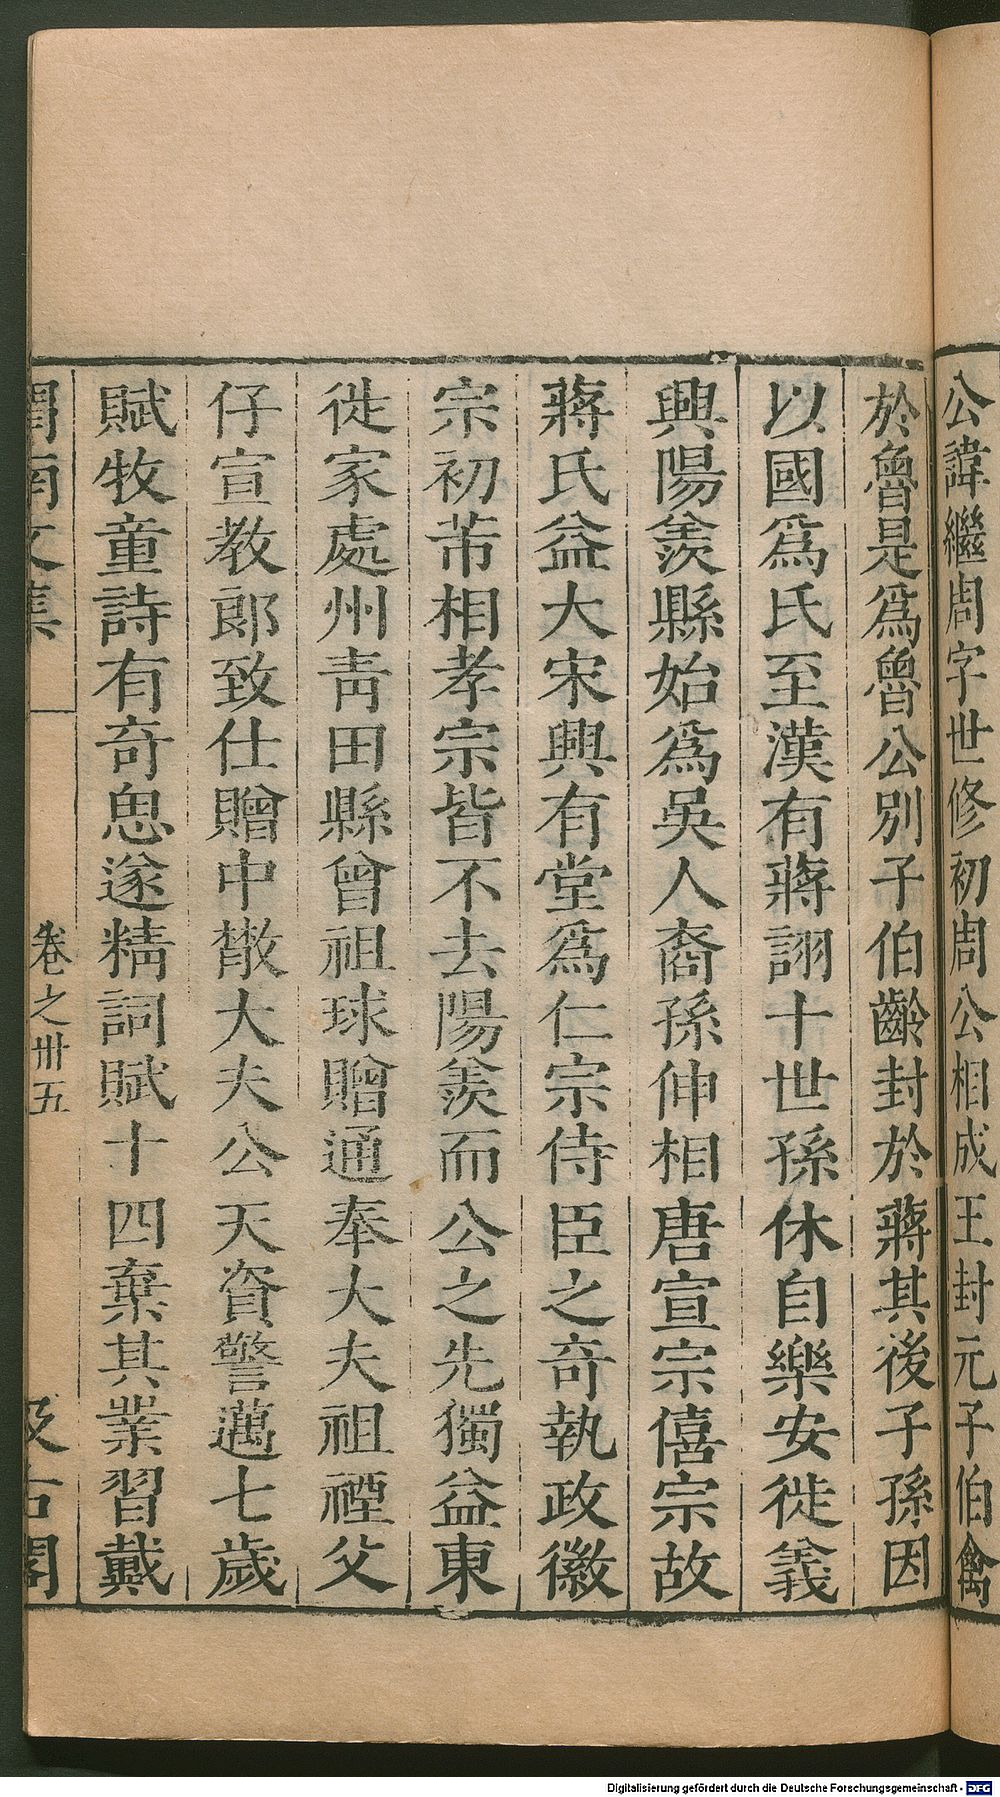 公諱繼周字世修初周公相成王封元子伯禽
於魯是爲魯公别子伯齡封於蔣其後子孫因
以國爲氏至漢有蔣詡十世孫休自樂安徙義
興陽羨縣始爲吳人裔孫伸相唐宣宗僖宗故
蔣氏益大宋興有堂爲仁宗侍臣之奇執政徽
宗初芾相孝宗皆不去陽羨而公之先獨益東
徙家處州靑田縣曾祖球贈通奉大夫祖禋父
仔宣教郎致仕贈中散大夫公天資警邁七歲
賦牧童詩有奇思遂精詞賦十四棄其業習戴
渭南文集 卷之卅五 汲古閣
Digitalisierung gefördert durch die Deutsche Forschungsgemeinschaft - DFG